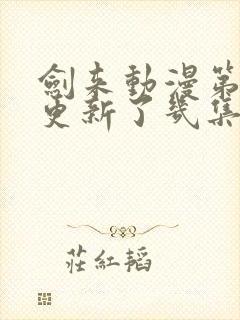 劍来動漫第
更新了幾集
莊紅韜